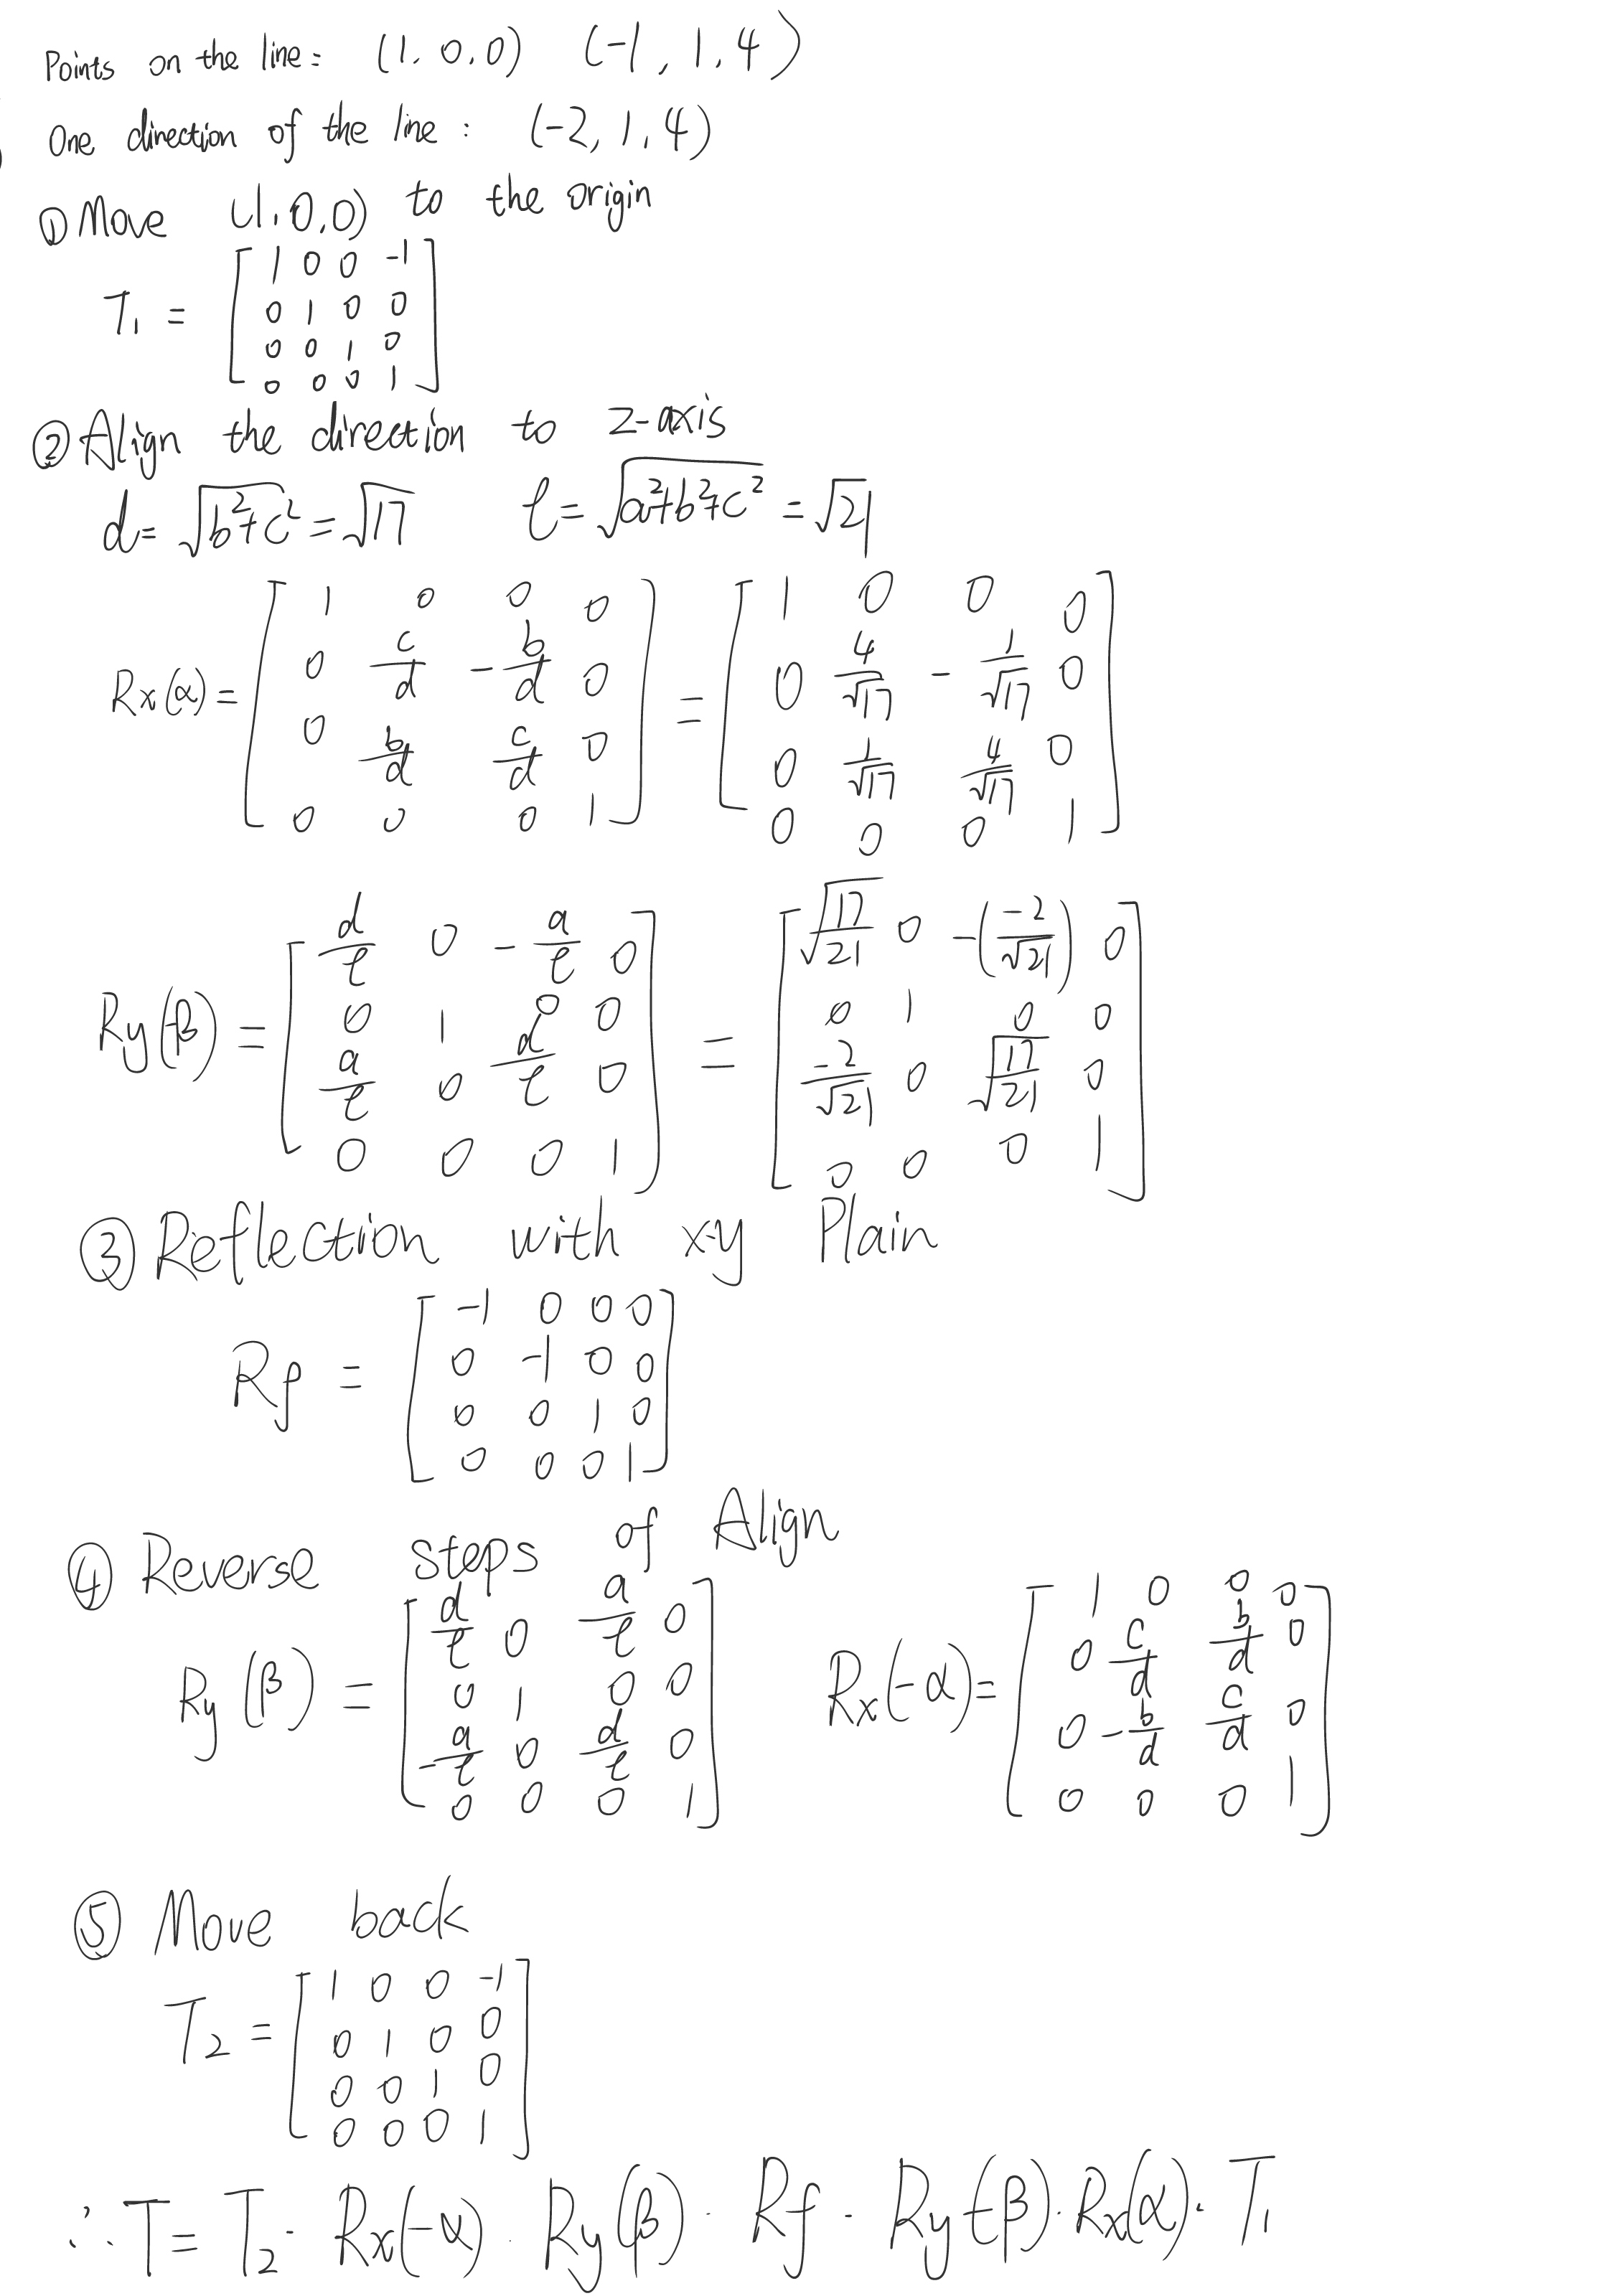 Points on the line: (1, 0, 0) (-1, 1, 4)
One direction of the line: (-2, 1, 4)
① Move (1, 0, 0) to the origin
T₁ = [1 0 0 -1; 0 1 0 0; 0 0 1 0; 0 0 0 1]
② Align the direction to z-axis
d = √(b²+c²) = √17 ℓ = √(a²+b²+c²) = √21
Rx(α) = [1 0 0 0; 0 c/d -b/d 0; 0 b/d c/d 0; 0 0 0 1] = [1 0 0 0; 0 4/√17 -1/√17 0; 0 1/√17 4/√17 0; 0 0 0 1]
Ry(-β) = [d/ℓ 0 -a/ℓ 0; 0 1 0 0; a/ℓ 0 d/ℓ 0; 0 0 0 1] = [√(17/21) 0 -(-2/√21) 0; 0 1 0 0; -2/√21 0 √(17/21) 0; 0 0 0 1]
③ Reflection with x-y Plain
Rf = [-1 0 0 0; 0 -1 0 0; 0 0 1 0; 0 0 0 1]
④ Reverse steps of Align
Ry(β) = [d/ℓ 0 a/ℓ 0; 0 1 0 0; -a/ℓ 0 d/ℓ 0; 0 0 0 1] Rx(-α) = [1 0 0 0; 0 c/d b/d 0; 0 -b/d c/d 0; 0 0 0 1]
⑤ Move back
T₂ = [1 0 0 -1; 0 1 0 0; 0 0 1 0; 0 0 0 1]
∴ T = T₂ · Rx(-α) · Ry(β) · Rf · Ry(-β) · Rx(α) · T₁